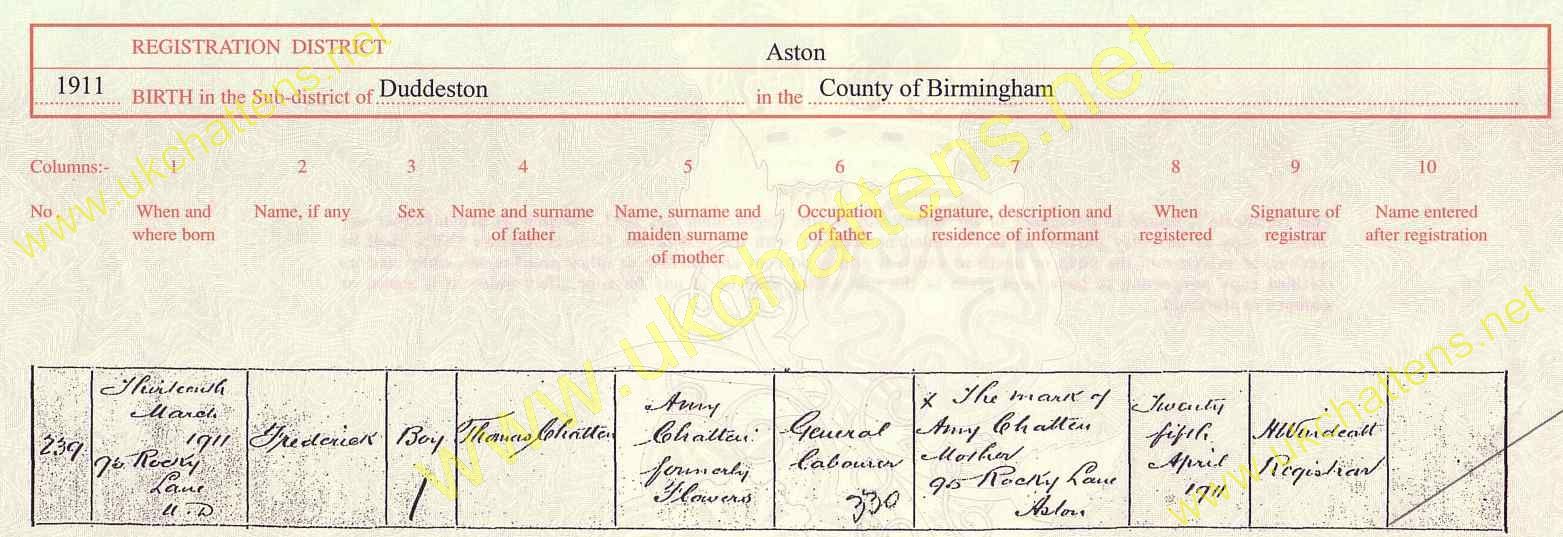 REGISTRATION DISTRICT Aston
1911 BIRTH in the Sub-district of Duddeston in the County of Birmingham
Columns:- 1 2 3 4 5 6 7 8 9 10
No. When and where born
Name, if any
Sex
Name and surname of father
Name, surname and maiden surname of mother
Occupation of father
Signature, description and residence of informant
When registered
Signature of registrar
Name entered after registration
239
Thirteenth
March
1911
95 Rocky
Lane
U.D
Frederick
Boy
Thomas Chatten
Amy
Chatten
formerly
Flowers
General
Labourer
330
X The mark of
Amy Chatten
Mother
95 Rocky Lane
Aston
Twenty
fifth
April
1911
Registrar
www.ukchattens.net
www.ukchattens.net
www.ukchattens.net